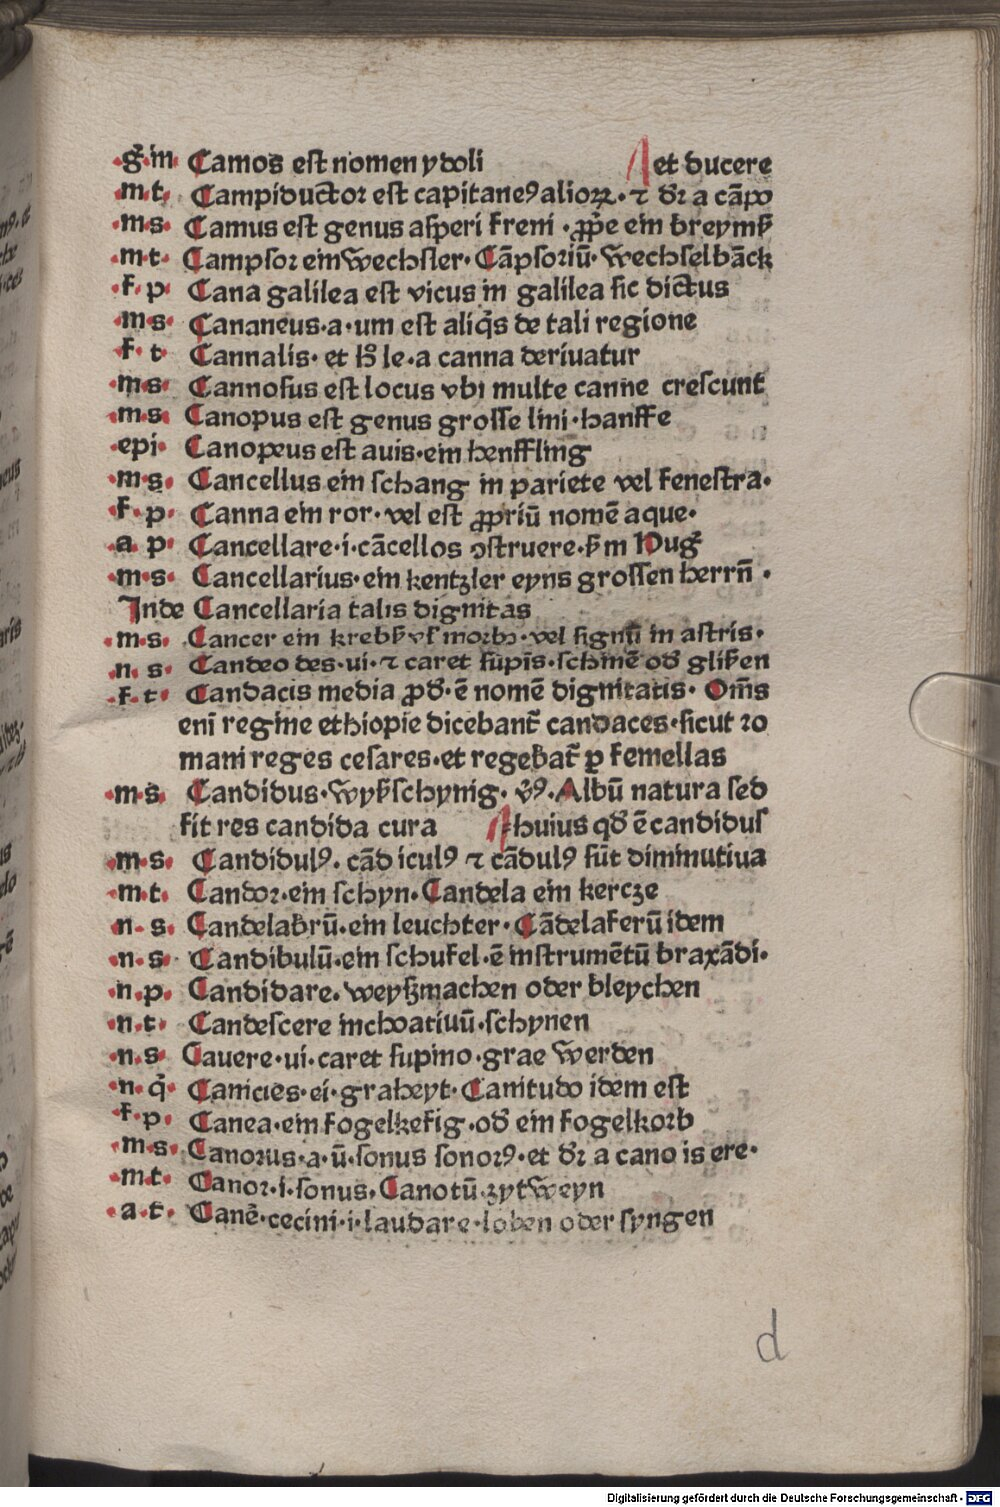 ·g̃·m· Camos est nomen ydoli et ducere
·m·t· Campiductor est capitaneꝰ alioꝝ· ⁊ dr̃ a cãpo
·m·s· Camus est genus asperi freni · ꝓp̃e ein breymß
·m·t· Campsor ein Wechsler· Cãpsoriũ· Wechselbãck
·f·p· Cana galilea est vicus in galilea sic dictus
·m·s· Cananeus·a·um est aliq̃s de tali regione
·f·t· Cannalis· et le·a canna deriuatur
·m·s· Cannosus est locus vbi multe canne crescunt
·m·s· Canopus est genus grosse lini·hanffe
·epi· Canopeus est auis·ein henffling
·m·s· Cancellus ein schang in pariete vel fenestra·
·f·p· Canna ein ror·vel est ꝓpriũ nomẽ aque·
·a·p· Cancellare·i·cãcellos ꝯstruere· m Hug̃
·m·s· Cancellarius·ein kentzler eyns grossen herrñ ·
Inde Cancellaria talis dignitas
·m·s· Cancer ein krebß morbꝰ·vel signũ in astris·
·n·s· Candeo des·ui·⁊ caret supĩs·schinẽ od̃ glißen
·f·t· Candacis media ꝓd̃·ẽ nomẽ dignitatis· Om̃s
eni regine ethiopie dicebant̃ candaces·sicut ro
mani reges cesares·et regebãt̃ ꝑ femellas
·m·s· Candidus·Wyßschynig· v̾ꝰ·Albũ natura sed
fit res candida cura huius qd̃ ẽ candidus
·m·s· Candidulꝰ· cãd iculꝰ ⁊ cãdulꝰ sũt diminutiua
·m·t· Candor·ein schyn·Candela ein kercze
·n·s· Candelabrũ·ein leuchter·Cãdelaferũ idem
·n·s· Candibulũ·ein schufel·ẽ instrumẽtũ braxãdi·
·n·p· Candidare·weyßmachen oder bleychen
·n·t· Candescere inchoatiuũ·schynen
·n·s· Cauere·ui·caret supino·grae Werden
·n·q̃· Canicies·ei·graheyt·Canitudo idem est
·f·p· Canea·ein fogelkefig·od̃ ein fogelkorb
·m·s· Canorus·a·ũ·sonus sonorꝰ·et dr̃ a cano is ere·
·m·t· Canor·i·sonus·Canotũ·zytWeyn
·a·t· Canẽ·cecini·i·laudare·loben oder syngen
d
Digitalisierung gefördert durch die Deutsche Forschungsgemeinschaft · DFG